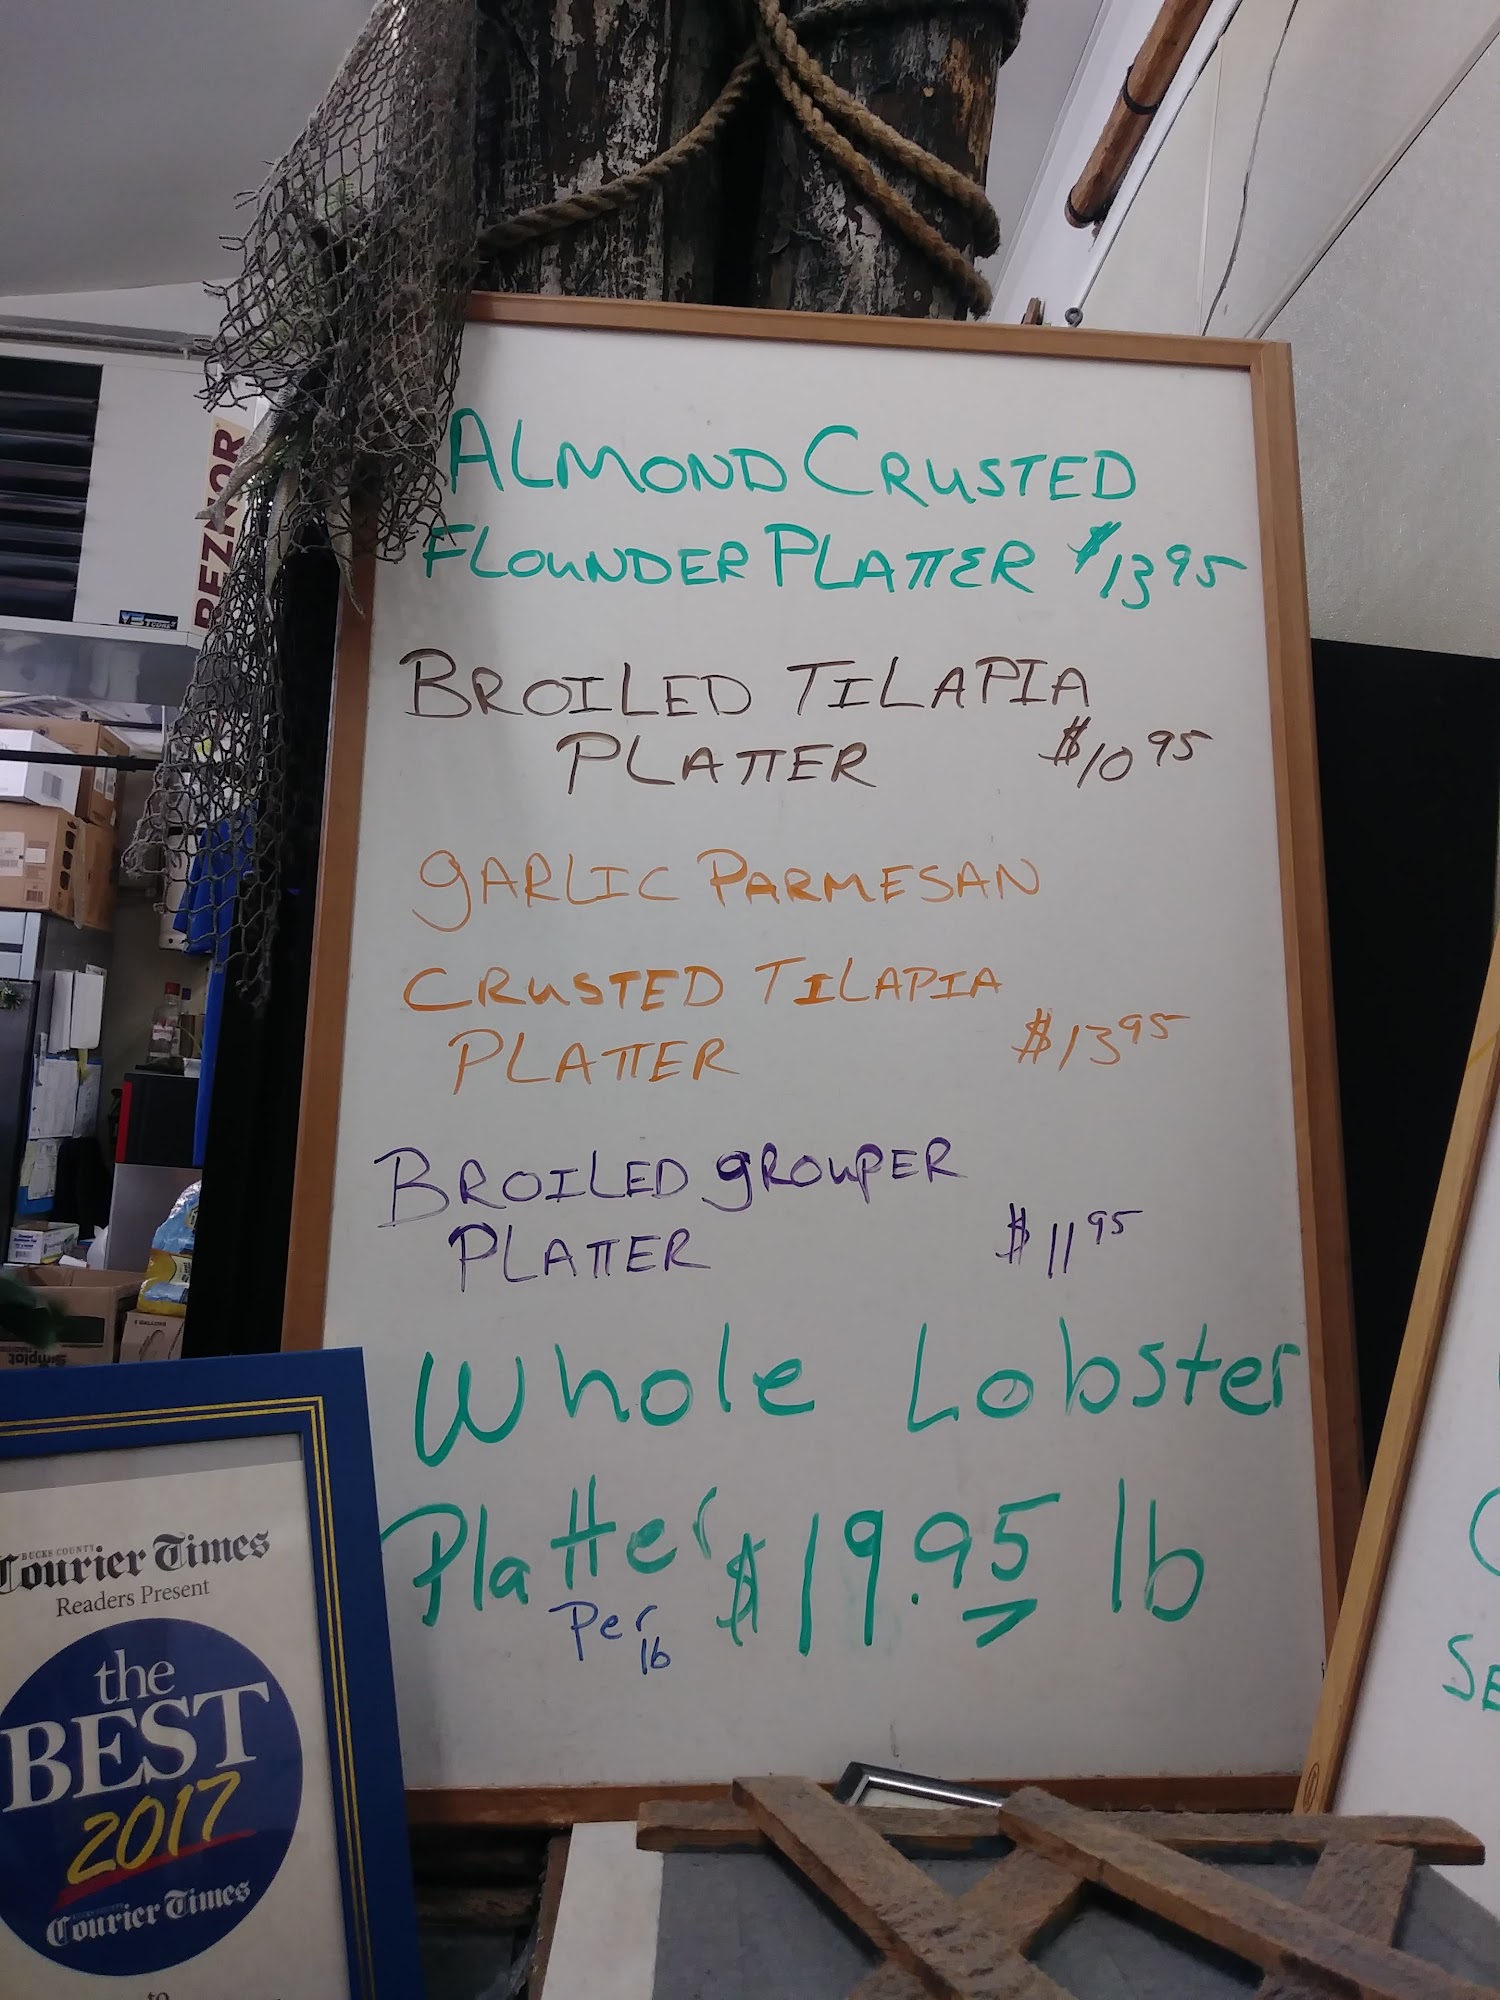 ALMOND CRUSTED
FLOUNDER PLATTER $13 95
BROILED TILAPIA
PLATTER $10 95
GARLIC PARMESAN
CRUSTED TILAPIA
PLATTER $13 95
BROILED GROUPER
PLATTER $11 95
Whole Lobster
Platter $19.95 lb
Per
lb
REZNOR
BUCKS COUNTY
Courier Times
Readers Present
the
BEST
2017
Courier Times
to
Simplot
SE